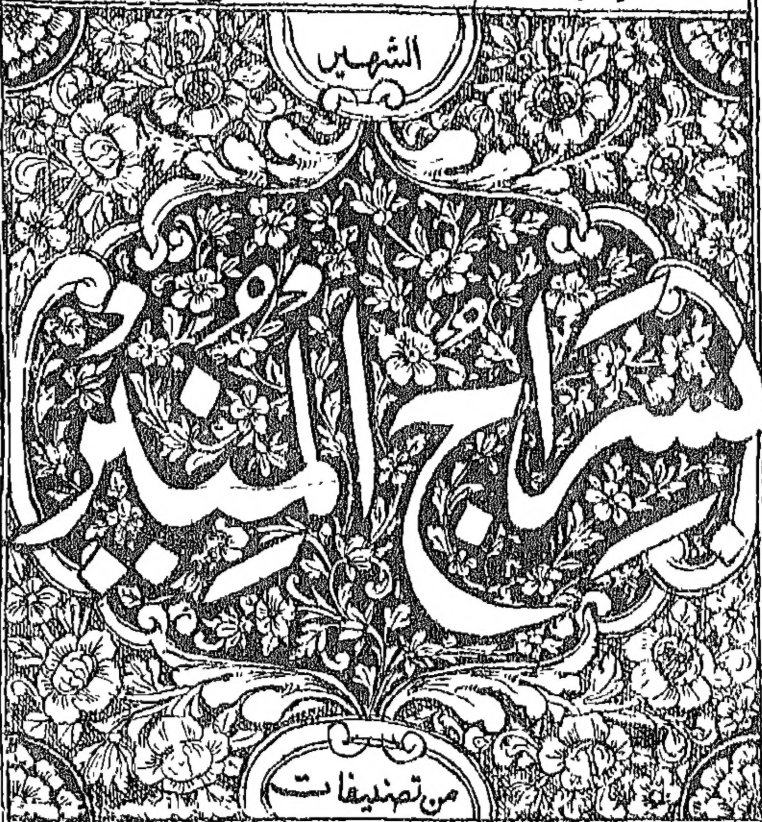 الشهير
بسِرَاجُ المُنِيْر
من تصنيفات